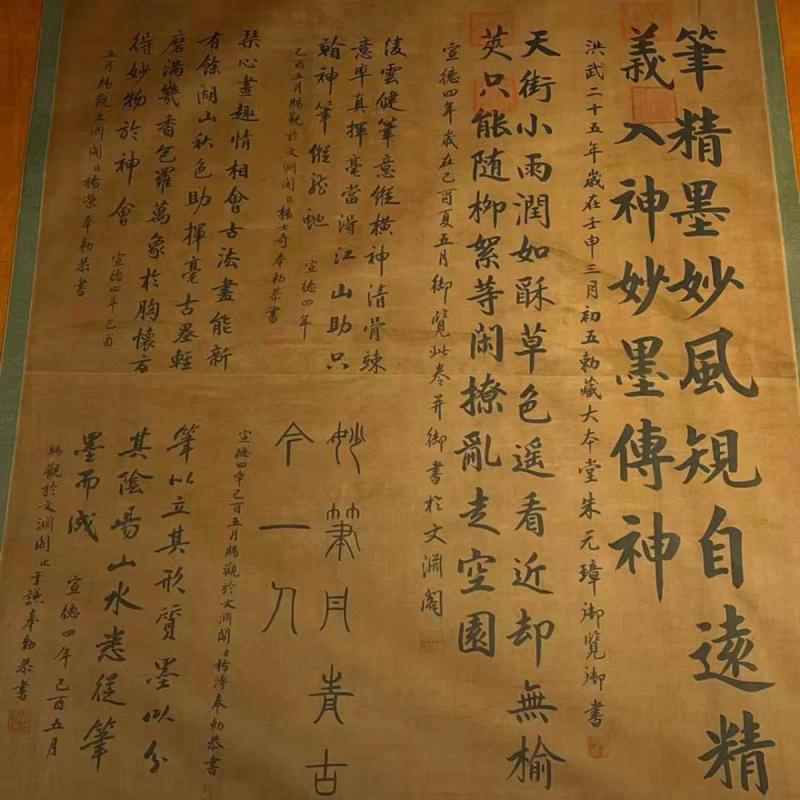 筆精墨妙風規自遠精
義入神妙墨傳神
洪武二十五年歲在壬申三月初五勅藏大本堂朱元璋御覽御書
天街小雨潤如酥草色遥看近却無榆
莢只能随柳絮等閑撩亂走空園
宣德四年歲在己酉夏五月御覽此卷并御書於文淵閣
凌雲健筆意縱橫神清骨竦
意率真揮毫當得江山助只
翰神筆縱龍虵 宣德四年
己酉五月賜觀於文淵閣臣楊士奇奉勅恭書
琹心畫趣情相會古法盡能新
有餘湖山秋色助揮毫古墨輕
磨满幾香色羅萬象於胸懷方
得妙物於神會 宣德四年己酉
五月賜觀文淵閣臣楊榮奉勅恭書
妙筆丹青古
今一人
宣德四年己酉五月賜觀於文淵閣臣楊溥奉勅恭書
筆以立其形質墨以分
其陰陽山水悉從筆
墨而成 宣德四年己酉五月
賜觀於文淵閣臣于謙奉勅恭書